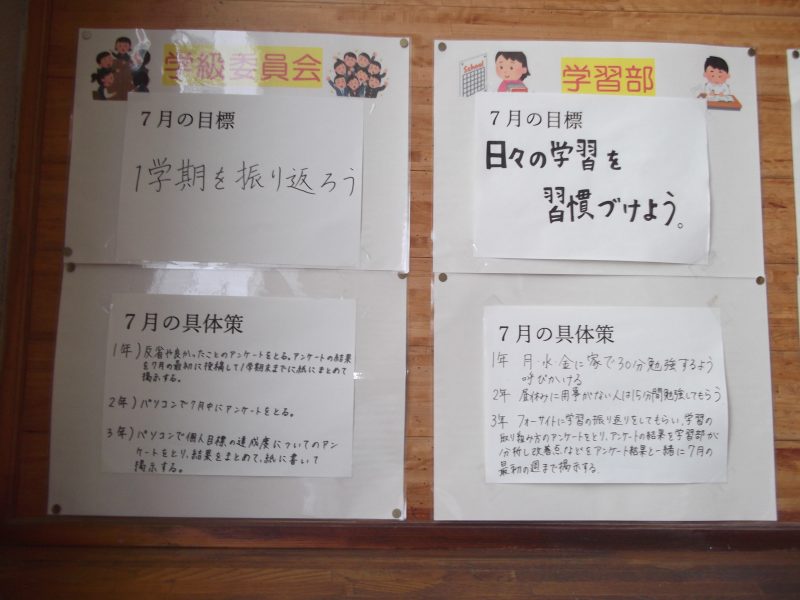 学級委員会
7月の目標
1学期を振り返ろう
7月の具体策
1年)反省や良かったことのアンケートをとる。アンケートの結果
を7月の最初に投稿して1学期末までに紙にまとめて
掲示する。
2年)パソコンで7月中にアンケートをとる。
3年)パソコンで個人目標の達成度についてのアン
ケートをとり、結果をまとめて、紙に書いて
掲示する。
School
学習部
7月の目標
日々の学習を
習慣づけよう。
7月の具体策
1年 月・水・金に家で30分勉強するよう
呼びかける
2年 昼休みに用事がない人は15分間勉強してもらう
3年 フォーサイトに学習の振り返りをしてもらい、学習の
取り組み方のアンケートをとり、アンケートの結果を学習部が
分析し改善点などをアンケート結果と一緒に7月の
最初の週まで掲示する.